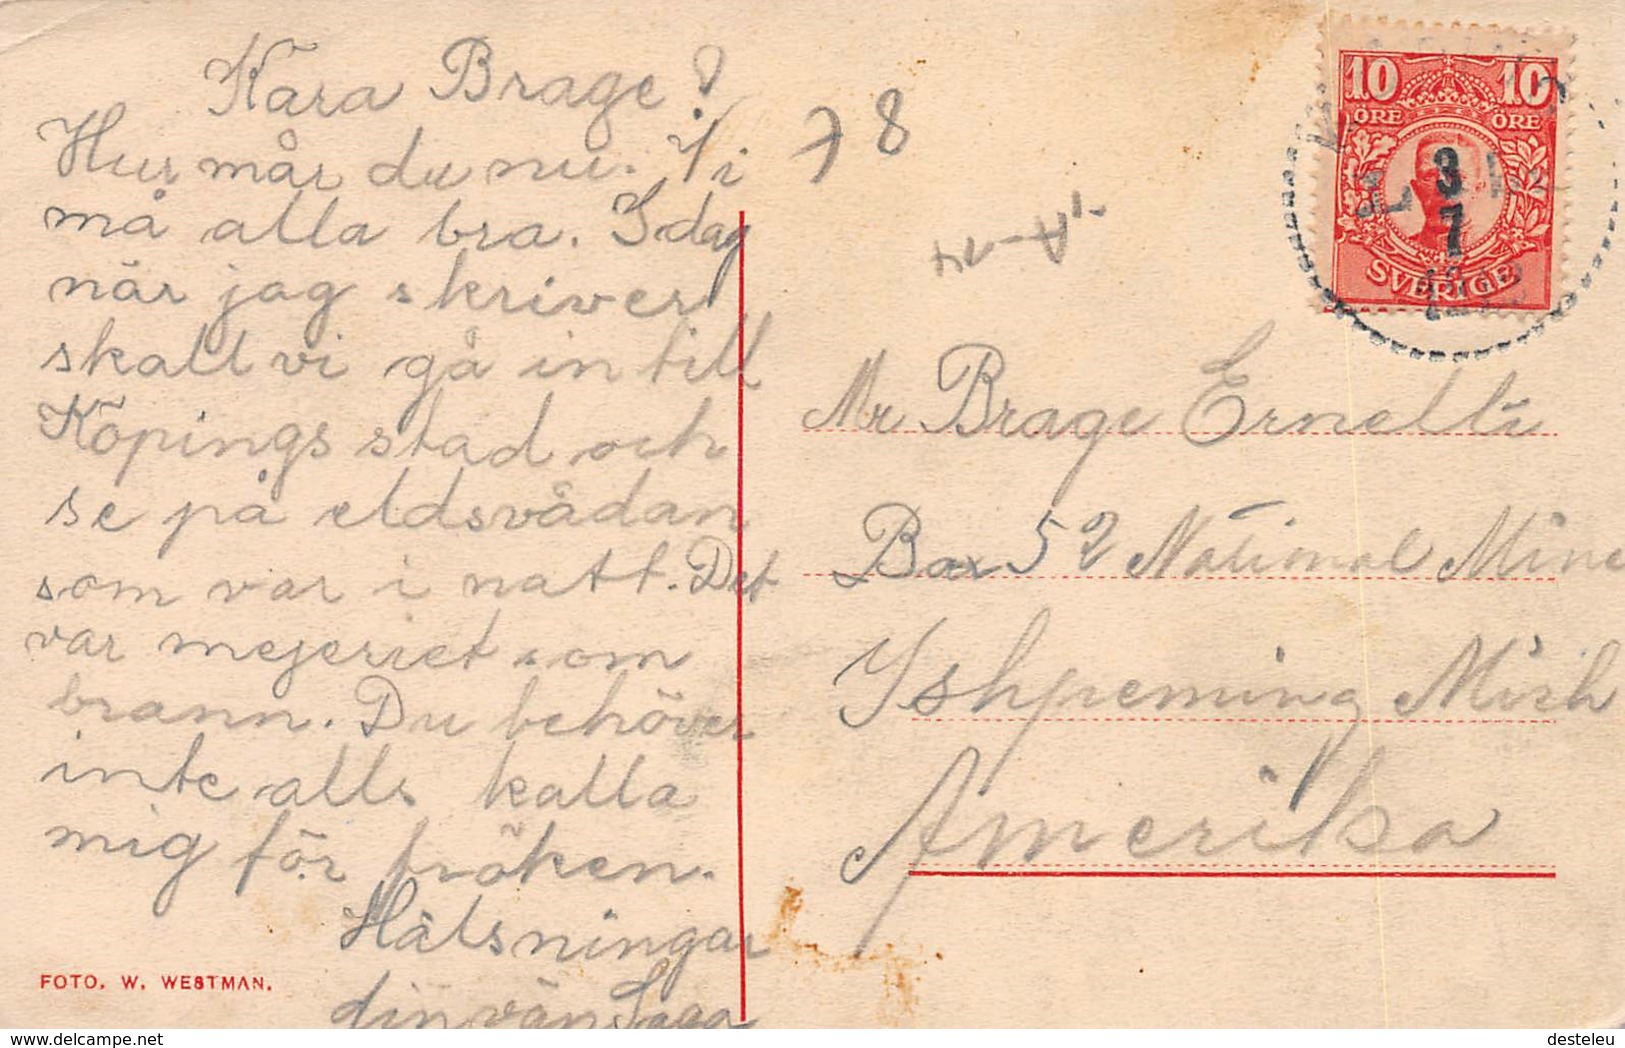 Kära Brage!
Hur mår du nu. Vi
må alla bra. I dag
när jag skriver
skall vi gå in till
Köpings stad och
se på eldsvådan
som var i natt. Det
var mejeriet som
brann. Du behöver
inte alls kalla
mig för fröken.
Hälsningar
din vän Saga
FOTO. W. WESTMAN.
78
10 10
ÖRE ÖRE
SVERIGE
3
7
Mr Brage Ernelli
Box 52 National Mine
Ishpeming Mich
Amerika
www.delcampe.net
desteleu